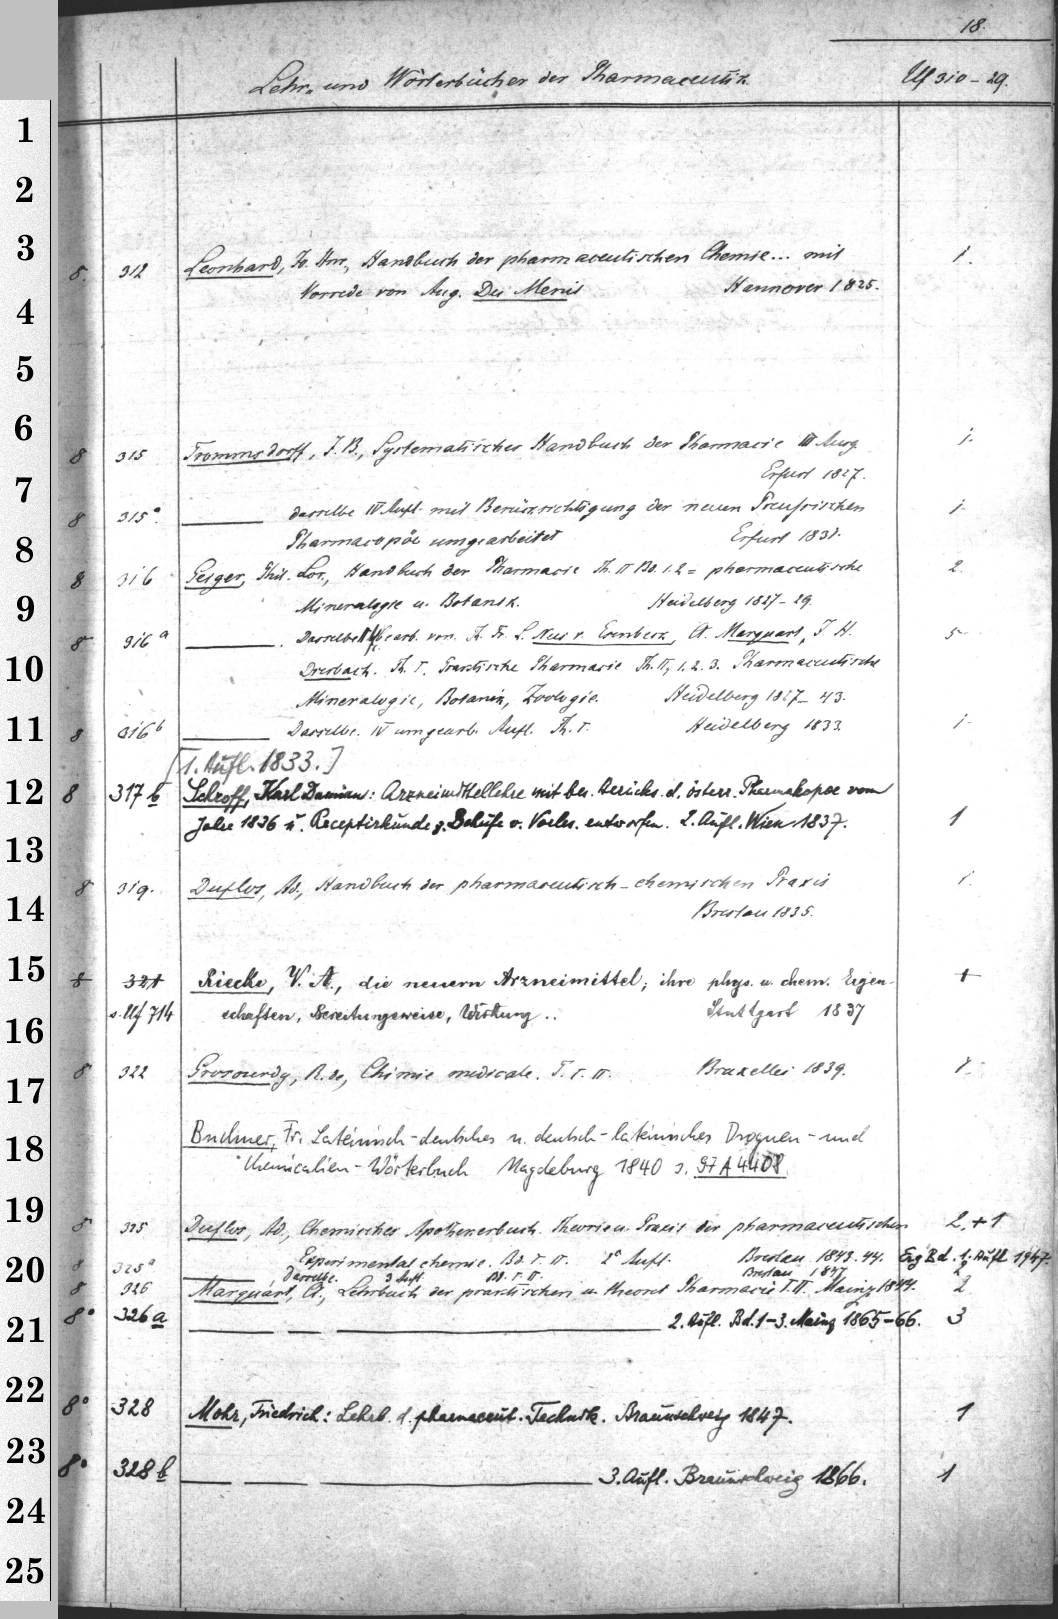 18.
Lehr- und Wörterbücher der Pharmaceutik. Uf 310-29.
1
2
3
8. 312 Leonhard, Fr. Hnr., Handbuch der pharmaceutischen Chemie... mit 1.
Vorrede von Aug. Du Menil Hannover 1825.
4
5
6
8 315 Trommsdorff, J. B., Systematisches Handbuch der Pharmacie III Ausg. 1.
Erfurt 1827.
7
8 315a. ——— dasselbe IV Aufl. mit Berücksichtigung der neuen Preussischen 1.
Pharmacopöe umgearbeitet Erfurt 1831.
8
8 316 Geiger, Phil. Lor., Handbuch der Pharmacie Th. II Bd. 1.2 = pharmaceutische 2.
Mineralogie u. Botanik. Heidelberg 1827-29.
9
8 316a ———. Dasselbe bearb. von Th. Fr. L. Nees v. Esenbeck, Cl. Marquart, J. H. 5
Dierbach. Th. I. Praktische Pharmacie Th. II, 1. 2. 3. Pharmaceutische
10
Mineralogie, Botanik, Zoologie. Heidelberg 1827-43.
11
8 316b ——— Dasselbe. IV umgearb. Aufl. Th. I. Heidelberg 1833 1.
[1. Aufl. 1833.]
12
8 317b Schroff, Karl Damian: Arzneimittellehre mit bes. Berücks. d. österr. Pharmakopoe vom
Jahre 1836 u. Receptirkunde z. Behufe v. Vorles. entworfen. 2. Aufl. Wien 1837. 1
13
8 319. Duflos, Ad., Handbuch der pharmaceutisch-chemischen Praxis 1.
14
Breslau 1835.
15
8 321 Riecke, V. A., die neuern Arzneimittel; ihre phys. u. chem. Eigen- 1
s. Uf 714 schaften, Bereitungsweise, Wirkung.. Stuttgart 1837
16
8 322 Grosourdy, R. de, Chimie medicale. T. I. II. Bruxelles 1839. 2.
17
Buchner, Fr. Lateinisch-deutsches u. deutsch-lateinisches Droguen- und
18
Chemicalien-Wörterbuch Magdeburg 1840 s. 97 A 4408
19
8 325 Duflos, Ad., Chemisches Apothekerbuch. Theorie u. Praxis der pharmaceutischen 2.+1
Experimentalchemie. Bd. I. II. 2e Aufl. Breslau 1843. 44. Erg Bd. 1. Aufl 1947.
20
8 325a ——— Dasselbe. 3 Aufl. Bd. I. II. Breslau 1847 2
8 326 Marquart, Cl., Lehrbuch der praktischen u. theoret Pharmacie T. II. Mainz 1844. 2
21
8° 326a ——— — ——— 2. Aufl. Bd. 1-3. Mainz 1865-66. 3
22
8° 328 Mohr, Friedrich: Lehrb. d. pharmaceut. Technik. Braunschweig 1847. 1
23
8° 328b — —— ——— 3. Aufl. Braunschweig 1866. 1
24
25